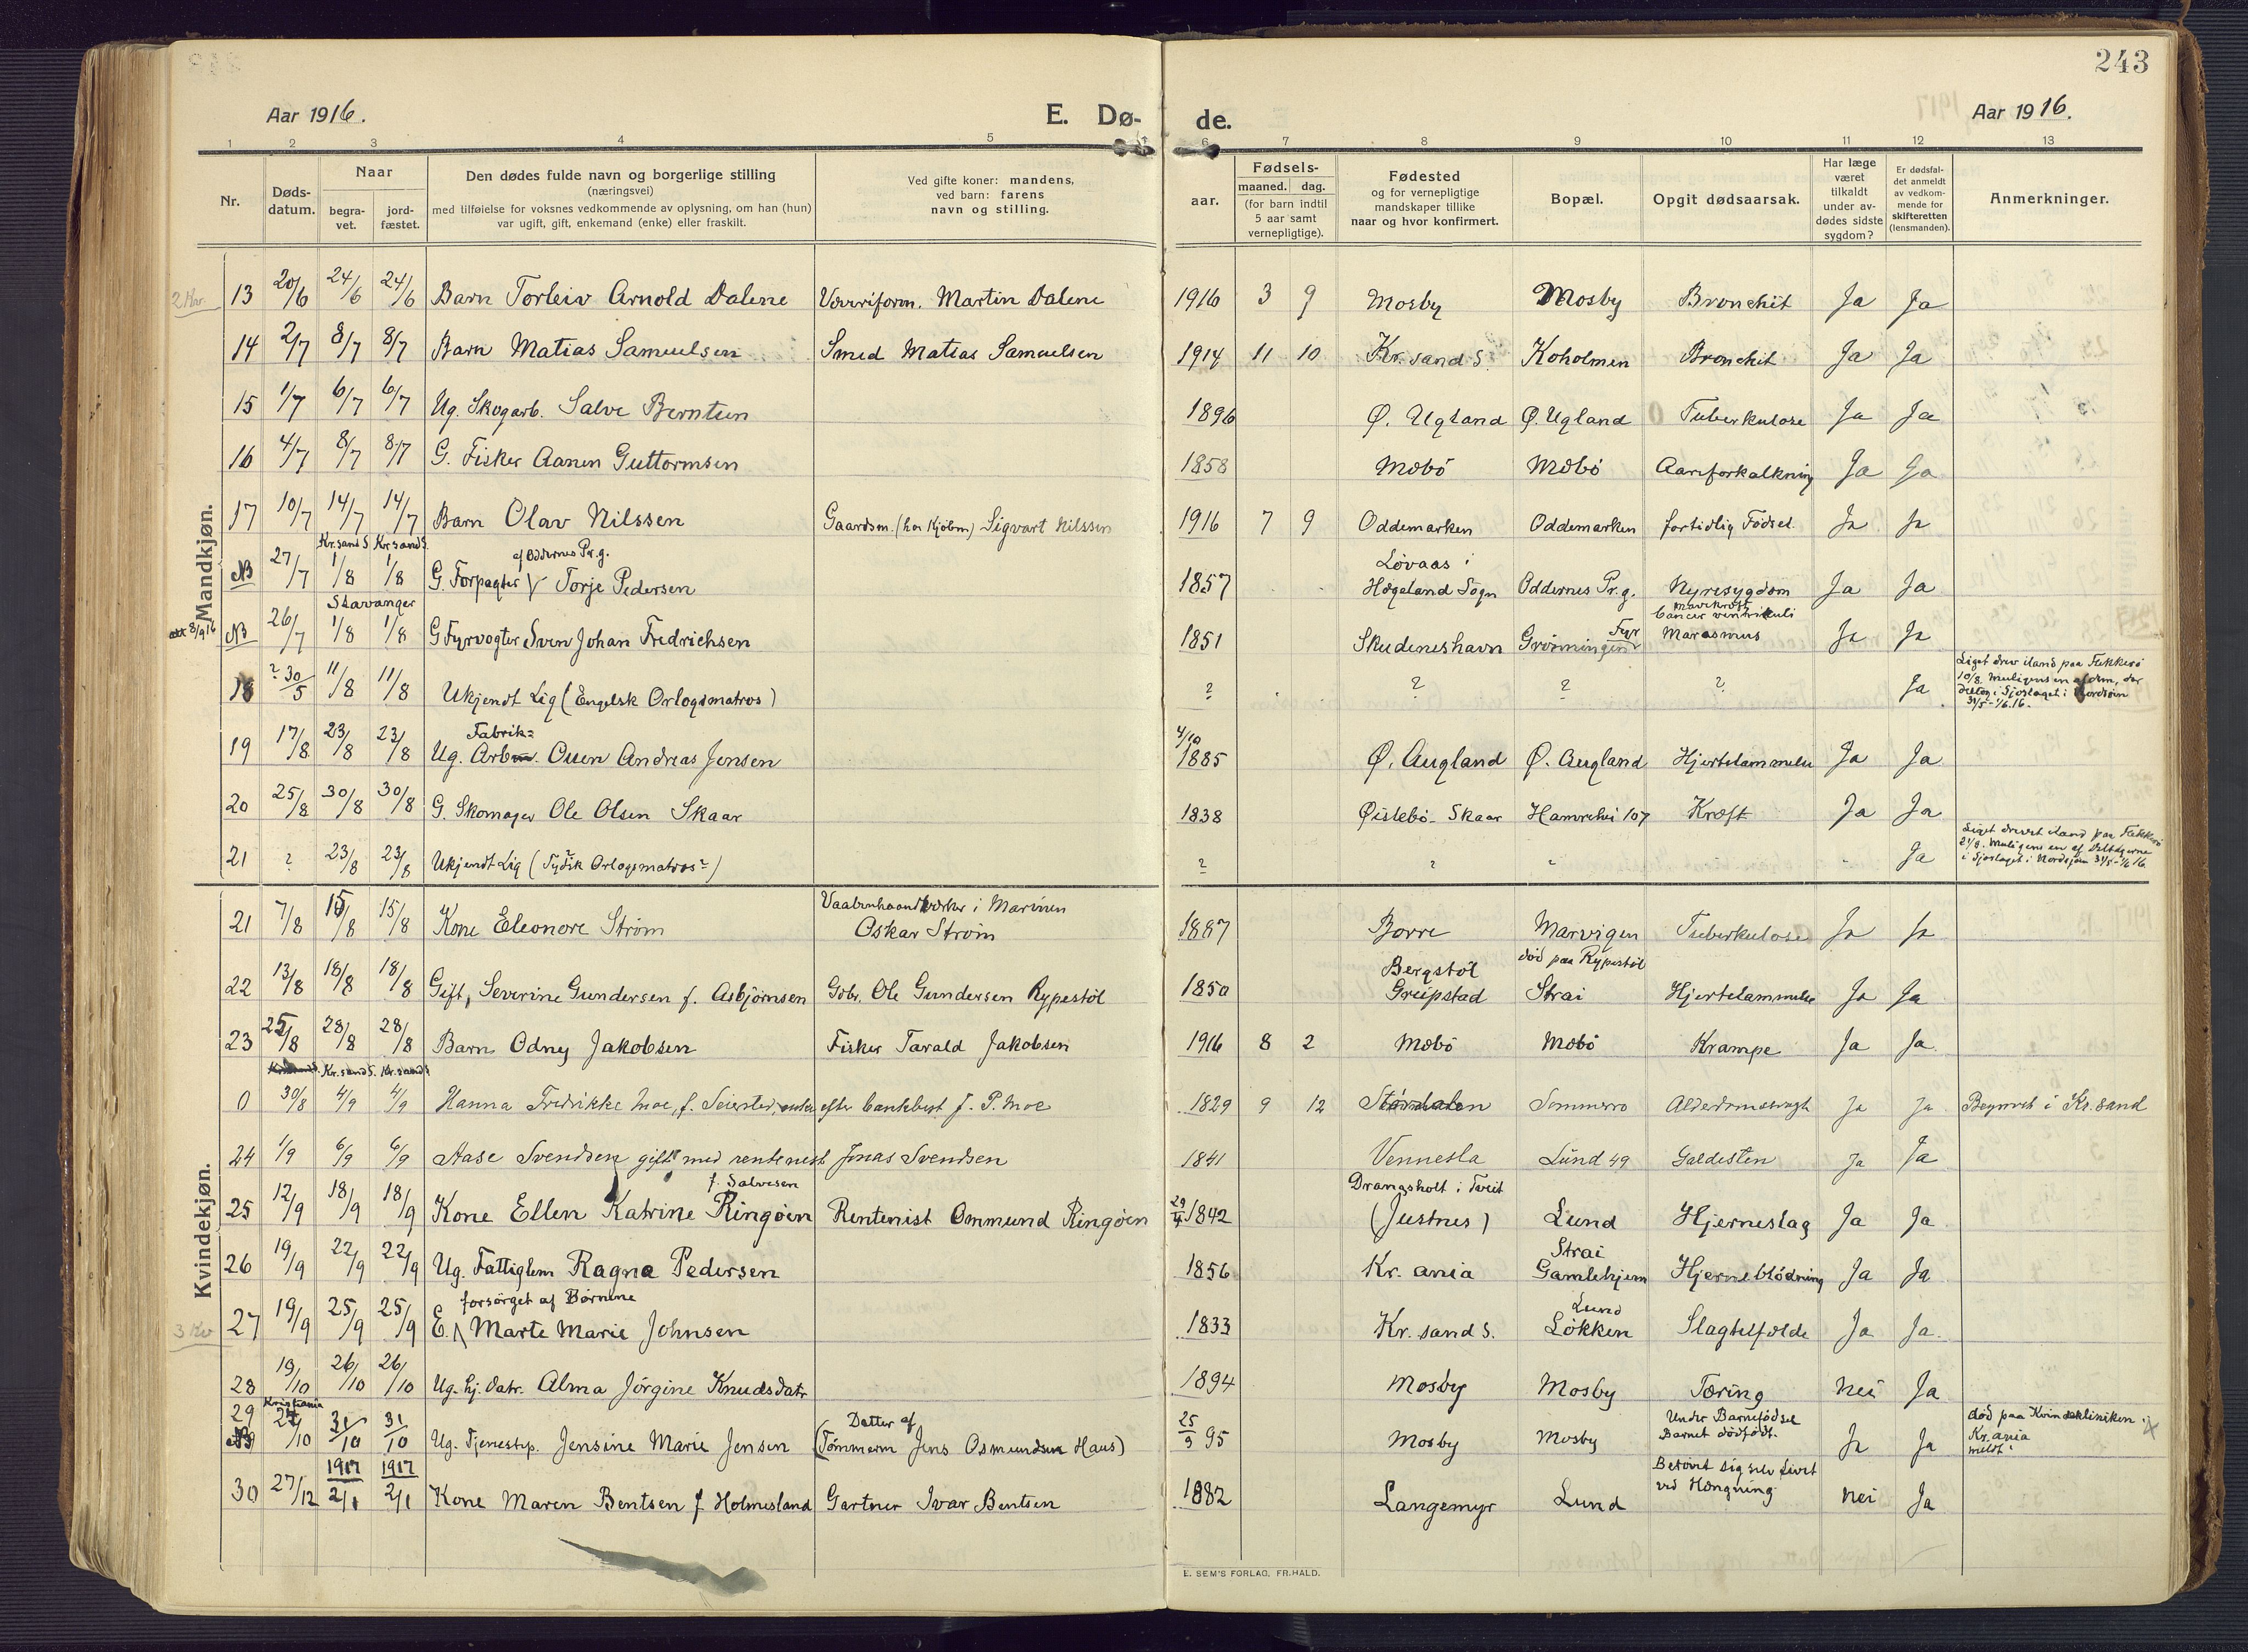 243
Aar 1916.
E. Dø- de.
Aar 1916.
1 2 3 4 5 6 7 8 9 10 11 12 13
Nr.
Døds-
datum.
Naar
begra-
vet.
jord-
fæstet.
Den dødes fulde navn og borgerlige stilling
(næringsvei)
med tilføielse for voksnes vedkommende av oplysning, om han (hun)
var ugift, gift, enkemand (enke) eller fraskilt.
Ved gifte koner: mandens,
ved barn: farens
navn og stilling.
aar.
Fødsels-
maaned. dag.
(for barn indtil
5 aar samt
vernepligtige).
Fødested
og for vernepligtige
mandskaper tillike
naar og hvor konfirmert.
Bopæl.
Opgit dødsaarsak.
Har læge
været
tilkaldt
under av-
dødes sidste
sygdom?
Er dødsfal-
det anmeldt
av vedkom-
mende for
skifteretten
(lensmanden).
Anmerkninger.
Mandkjøn.
13 20/6 24/6 24/6 Barn Torleiv Arnold Dalene Væveriform. Martin Dalene 1916 3 9 Mosby Mosby Bronchit Ja Ja
14 2/7 8/7 8/7 Barn Matias Samuelsen Smed Matias Samuelsen 1914 11 10 Kr.sand S. Koholmen Bronchit Ja Ja
15 1/7 6/7 6/7 Ug. Skogarb. Salve Berntsen 1896 Ø. Ugland Ø. Ugland Tuberkulose Ja Ja
16 4/7 8/7 8/7 G. Fisker Aanen Guttormsen 1858 Mæbö Mæbö Aareforkalkning Ja Ja
17 10/7 14/7 14/7 Barn Olav Nilssen Gaardsm. (hos Kjöbm) Sigvart Nilssen 1916 7 9 Oddemarken Oddemarken fortidlig Födsel Ja Ja
Kr.sand S. Kr.sand S. af Oddernes Pr.g. Løvaas i
NB 27/7 1/8 1/8 G. Forpagter Torje Pedersen 1857 Hægeland Sogn Oddernes Pr.g. Nyresygdom Ja Ja
Stavanger Mavekræft Cancer ventrikuli
att 8/9 16 NB 26/7 1/8 1/8 G Fyrvogter Sven Johan Fredrichsen 1851 Skudeneshavn Grönningen Fyr Marasmus Ja Ja
18 ? 30/5 11/8 11/8 Ukjendt Lig (Engelsk Orlogsmatros) ? ? ? ? Ja
Liget drev iland paa Flekkerö
10/8. Muligens en af dem, der
deltog i Sjöslaget i Nordsöen
31/5-1/6.16.
Fabrik= 4/10
19 17/8 23/8 23/8 Ug. Arb. Ouen Andreas Jensen 1885 Ø. Augland Ø. Augland Hjertelammelse Ja Ja
20 25/8 30/8 30/8 G. Skomager Ole Olsen Skaar 1838 Øislebö- Skaar Hamrehei 107 Kræft Ja Ja
21 ? 23/8 23/8 Ukjendt Lig (Tydsk Orlogsmatros?) ? ? Ja
Liget drevet iland paa Flekkerö
21/8. Muligens en af Deltagerne
i Sjöslaget i Nordsjöen 31/5-1/6 16
Kvindekjøn.
Vaabenhaandværker i Marinen
21 7/8 15/8 15/8 Kone Eleonore Ström Oskar Ström 1887 Borre Marvigen Tuberkulose Ja Ja
Bergstöl död paa Rypestöl
22 13/8 18/8 18/8 Gift, Severine Gundersen f. Asbjörnsen Gdbr. Ole Gundersen Rypestöl 1850 Greipstad Strai Hjertelammelse Ja Ja
23 25/8 28/8 28/8 Barn Odny Jakobsen Fisker Tarald Jakobsen 1916 8 2 Mæbö Mæbö Krampe Ja Ja
Kr.sand S. Kr.sand S
0 30/8 4/9 4/9 Hanna Fredrikke Moe, f. Seiersted, enke efter bankbest J. P. Moe 1829 9 12 Sommerro Alderdomssvagh Ja Ja Begravet i Kr.sand
24 1/9 6/9 6/9 Aase Svendsen gift med rentenist Jonas Svendsen 1841 Vennesla Lund 49 Galdesten Ja Ja
f. Salvesen Drangsholt i Tveit
25 12/9 18/9 18/9 Kone Ellen Katrine Ringöen Rentenist Ommund Ringöen 29/4 1842 (Justnes) Lund Hjerneslag Ja Ja
26 19/9 22/9 22/9 Ug. Fattiglem Ragna Pedersen 1856 Kr.ania Strai Gamlehjem Hjerneblödning Ja Ja
forsörget af Börnene
3 Kv 27 19/9 25/9 25/9 E. Marte Marie Johnsen 1833 Kr.sand S. Lund Lökken Slagtilfælde Ja Ja.
28 19/10 26/10 26/10 Ug. hj. datr. Alma Jörgine Knudsdatr 1894 Mosby Mosby Tæring Nei Ja
Kristiania
29 NB 24/10 31/10 31/10 Ug. Tjenestep. Jensine Marie Jensen Datter af (Tömmerm Jens Osmundsen Haus) 25/9 95 Mosby Mosby Under Barnefödsel Barnet dödfödt. Ja Ja
död paa Kvindekliniken i
Kr.ania
1917 1917
30 27/12 2/1 2/1 Kone Maren Bentsen f Holmesland Gartner Ivar Bentsen 1882 Langemyr Lund Berövet sig selv Livet ved Hængning Nei Ja
E. SEM'S FORLAG, FR.HALD.